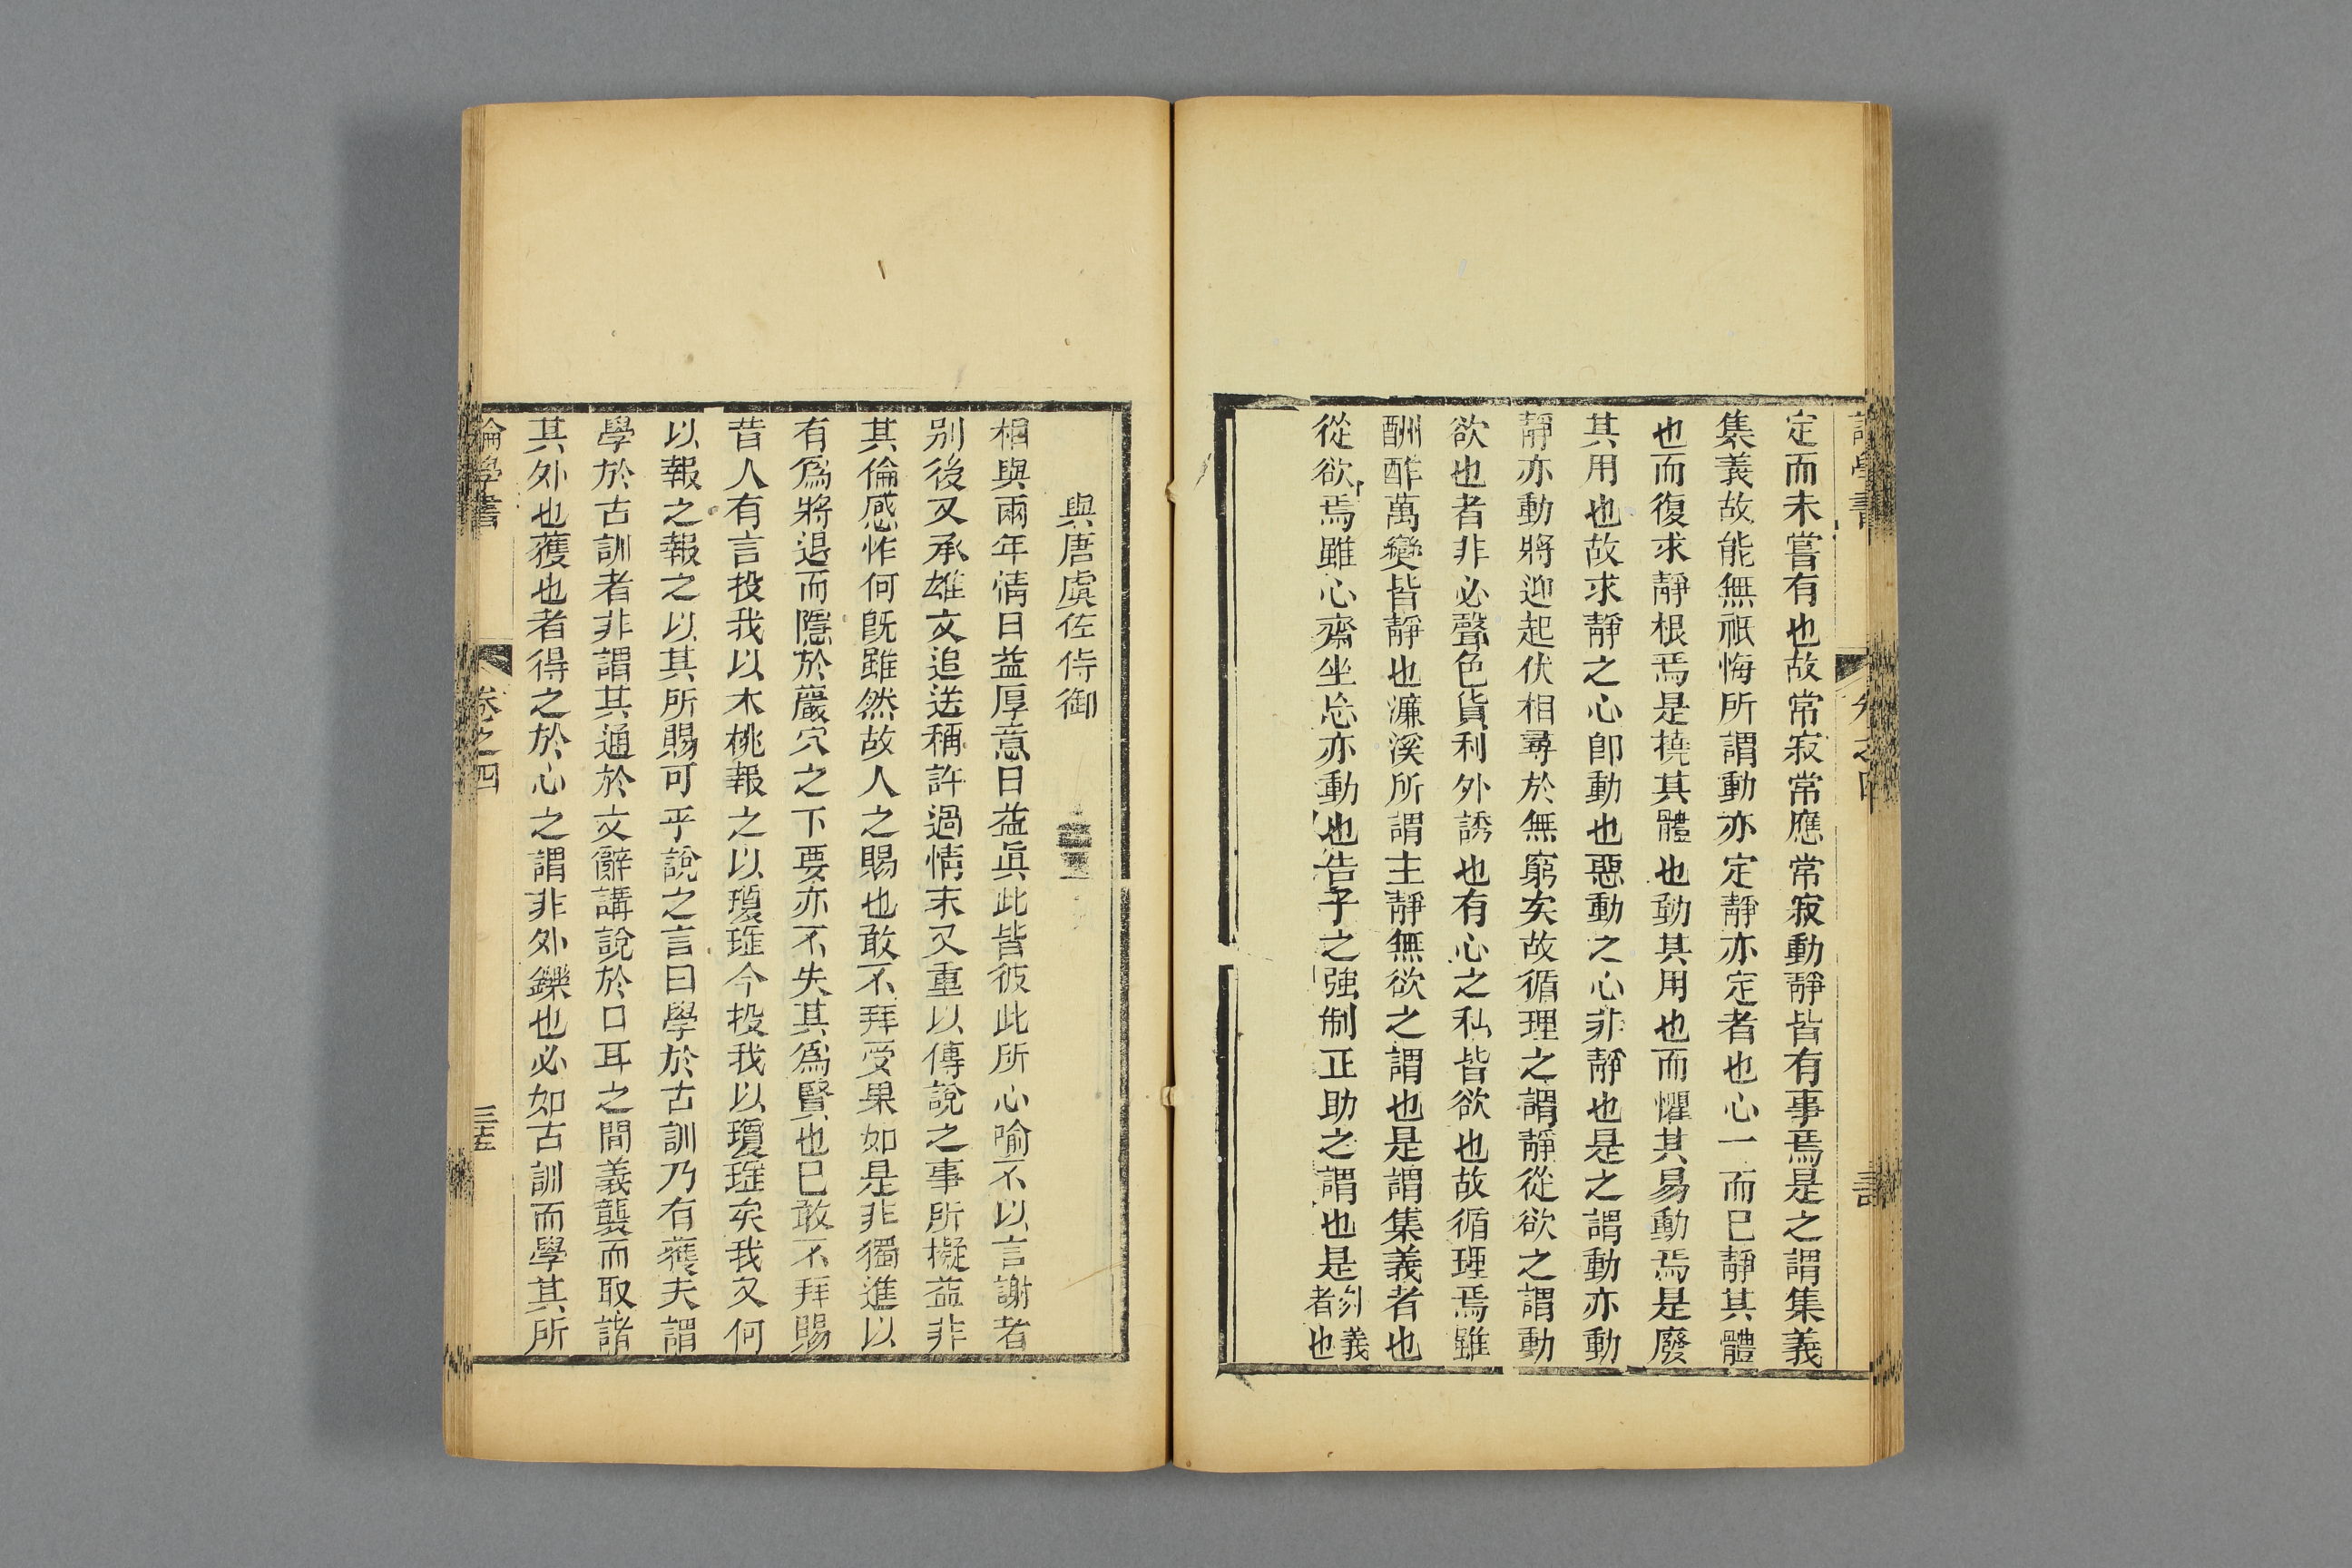 定而未嘗有也故常寂常應常寂動靜皆有事焉是之謂集義
集義故能無祇悔所謂動亦定靜亦定者也心一而巳靜其體
也而復求靜根焉是撓其體也動其用也而懼其易動焉是廢
其用也故求靜之心卽動也惡動之心非靜也是之謂動亦動
靜亦動將迎起伏相尋於無窮矣故循理之謂靜從欲之謂動
欲也者非必聲色貨利外誘也有心之私皆欲也故循理焉雖
酬酢萬變皆靜也濂溪所謂主靜無欲之謂也是謂集義者也
從欲焉雖心齋坐忘亦動也告子之強制正助之謂也是外義者也
與唐虞佐侍御
相與兩年情日益厚意日益眞此皆彼此所心喻不以言謝者
别後又承雄文追送稱許過情末又重以傳說之事所擬益非
其倫感怍何旣雖然故人之賜也敢不拜受果如是非獨進以
有爲將退而隱於巖穴之下要亦不失其爲賢也巳敢不拜賜
昔人有言投我以木桃報之以瓊瑤今投我以瓊瑤矣我又何
以報之報之以其所賜可乎說之言曰學於古訓乃有獲夫謂
學於古訓者非謂其通於文辭講說於口耳之間義襲而取諸
其外也獲也者得之於心之謂非外鑠也必如古訓而學其所
論學書
卷之四
三五